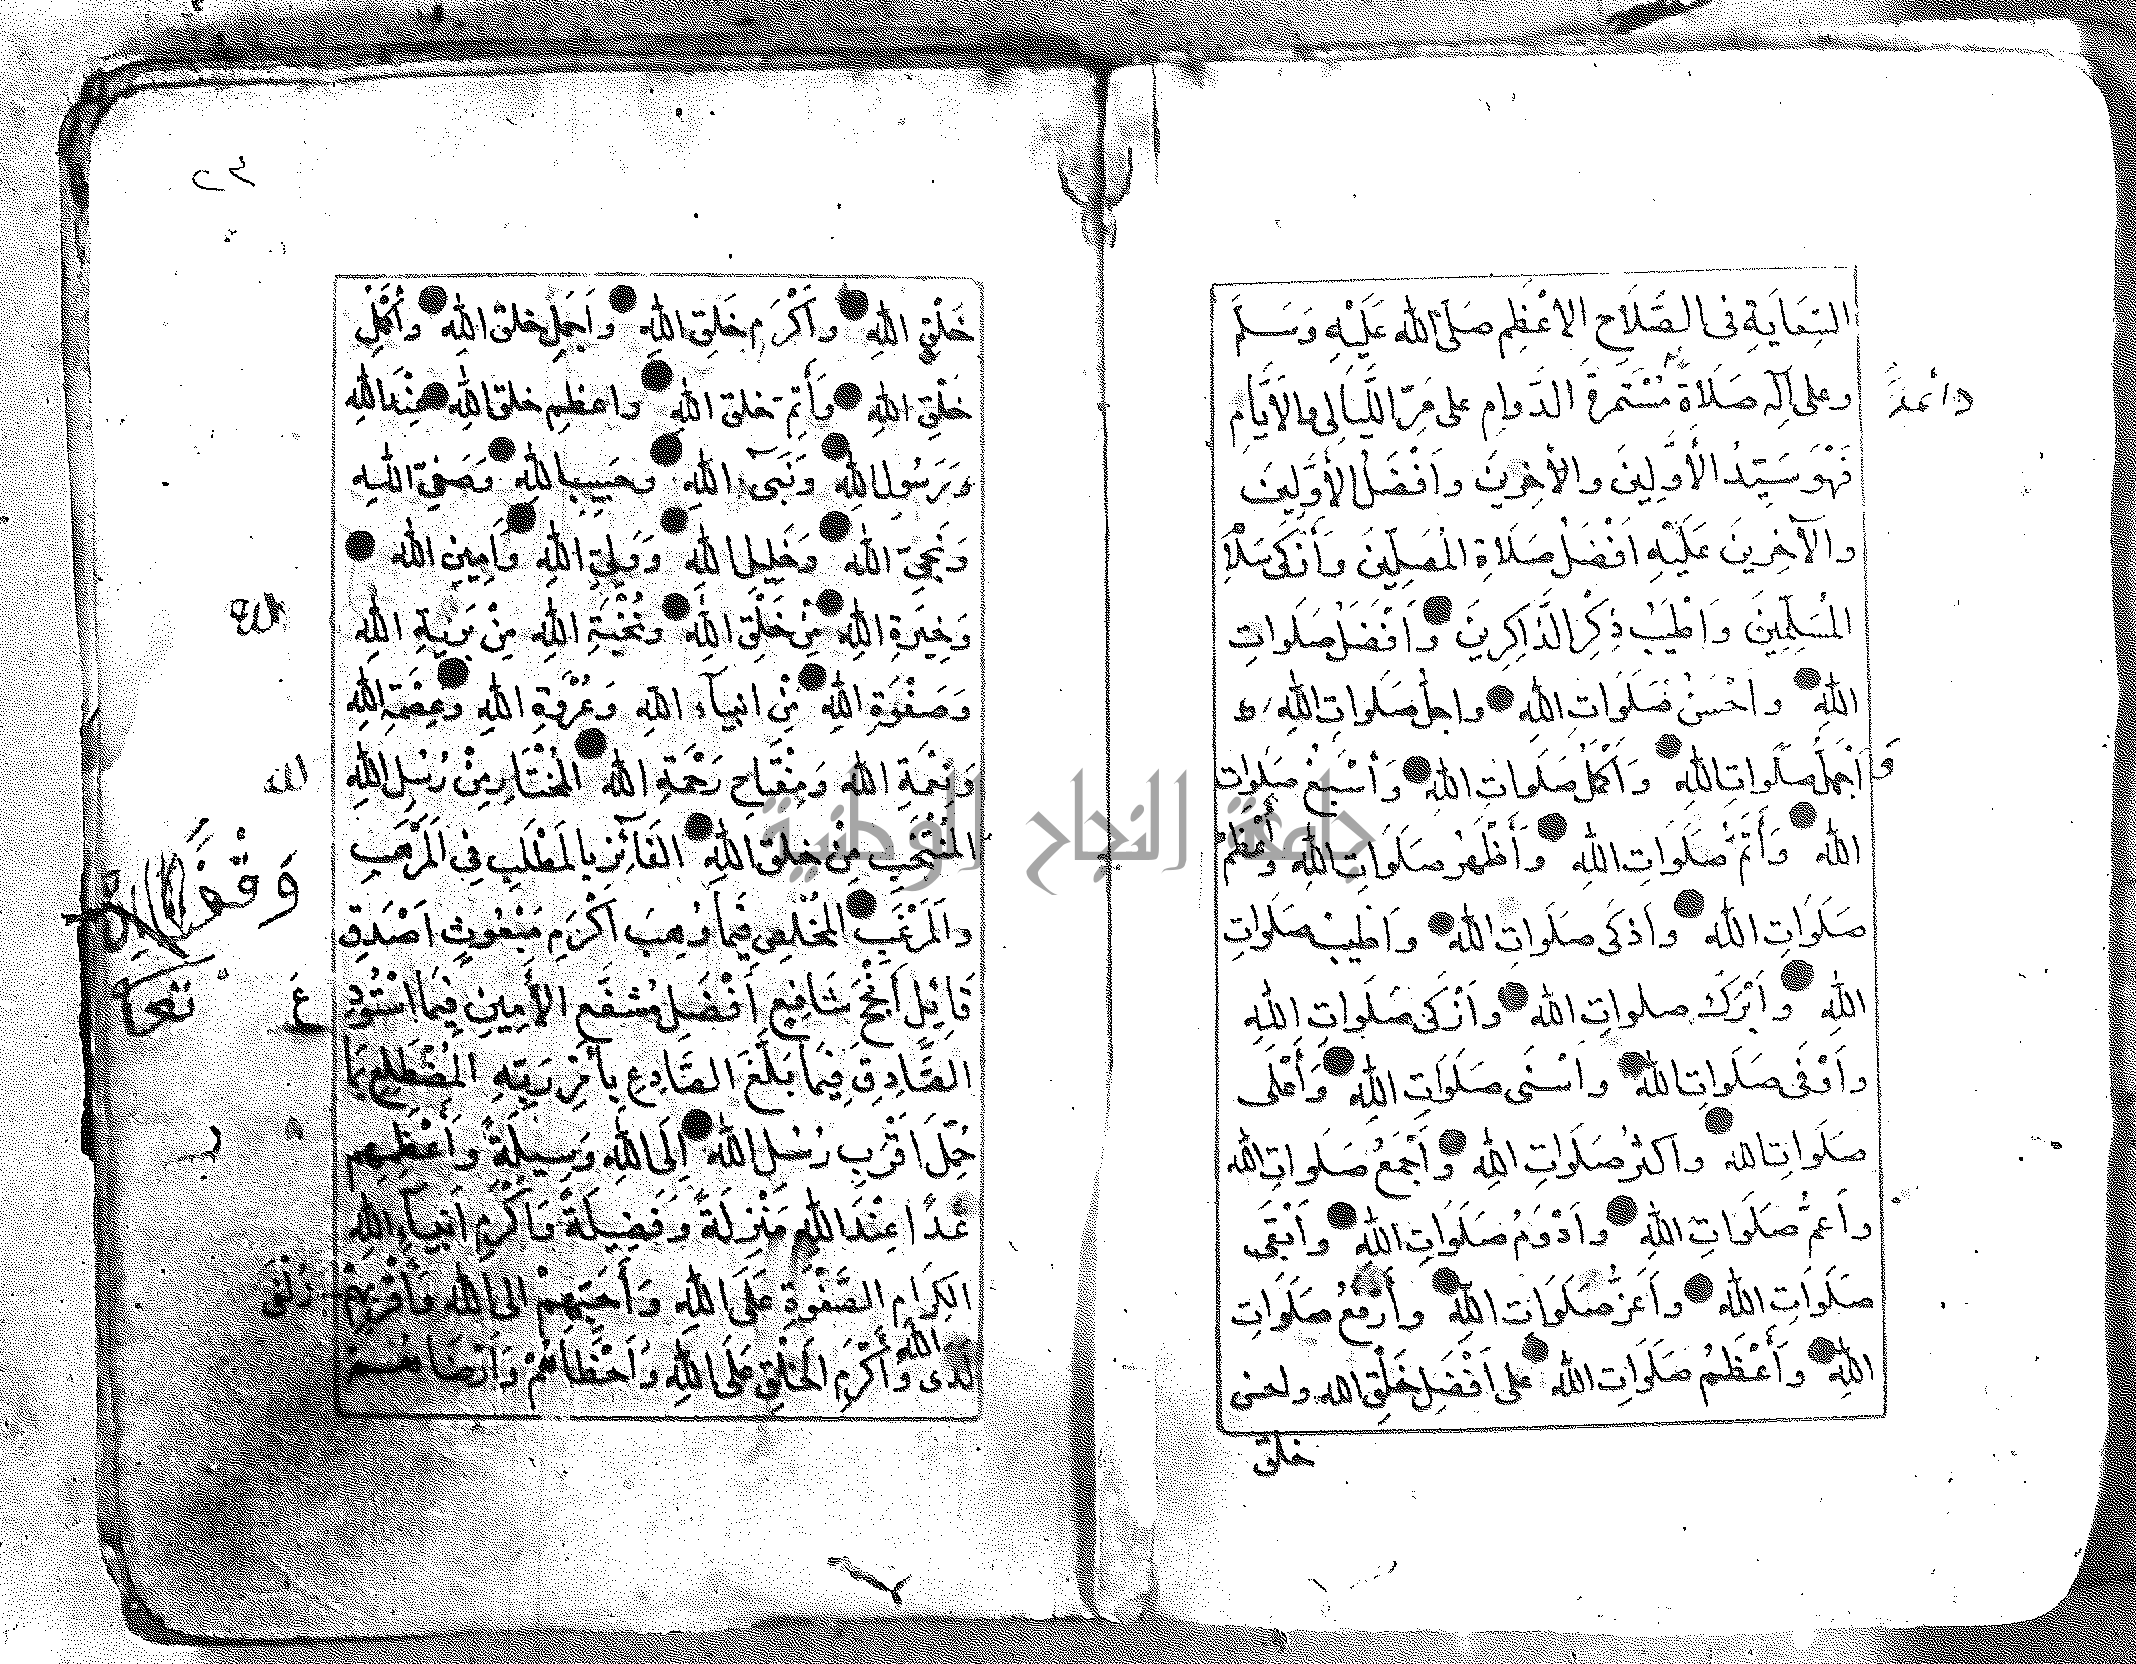 السِّعَايَةِ فى الصَّلَاحِ الاعْظَمِ صَلّى الله عَلَيْهِ وَسَلَّمَ
وعلى آلِهِ صَلَاةً مُسْتَمِرَّةَ الدَّوامِ على مَرِّ اللَّيَالِى والاَيَّامِ
دائمةً
فَهْوَ سَيِّدُ الأَوَّلِينَ والآخِرِينَ وَاَفْضَلُ الأَوَّلِينَ
والآخِرِينَ عَلَيْهِ اَفْضَلُ صَلَاةِ المُصَلِّينَ وَأَزْكَى سَلَامِ
المُسَلِّمِينَ وَاَطْيَبُ ذِكْرِ الذَّاكِرِينَ وَاَفْضَلُ صَلَوَاتِ
اللهِ واَحْسَنُ صَلَوَاتِ اللهِ واَجلُّ صَلَواتِ اللهِ
وَاَجْمَلُ صَلَواتِ اللهِ وَاَكْمَلُ صَلَواتِ اللهِ وَأَسْبَغُ صَلَوات
اللهِ وَأَتَمُّ صَلَوَاتِ اللهِ وَأَظْهَرُ صَلَوَاتِ اللهِ وَأَعْظَمُ
صَلَوَاتِ اللهِ وَاَذكَى صَلَوَاتِ اللهِ وَاَطيبُ صَلَواتِ
اللهِ وَاَبْرَكُ صلواتِ اللهِ وَاَزْكَى صَلَواتِ اللهِ
واَوْفَى صَلَواتِ اللهِ واَسْنَى صَلَوَاتِ اللهِ وَأَعْلَى
صَلَواتِ اللهِ واَكثرُ صَلَوَاتِ اللهِ وَاَجْمَعُ صَلَواتِ اللهِ
واَعَمُّ صَلَوَاتِ اللهِ واَدْوَمُ صَلَوَاتِ اللهِ وَاَبْقَى
صَلَوَاتِ اللهِ واَعَزُّ صَلَوَات اللهِ وأَرْفَعُ صَلَوَاتِ
اللهِ وَأَعْظَمُ صَلَوَاتِ اللهِ على اَفْضَلِ خَلْقِ الله واحسن
خلق
٢٣
خَلْقِ اللهِ وأَكْرَمِ خَلقِ اللهِ واَجمَلِ خلقِ اللهِ وأَكْمَلِ
خَلْقِ اللهِ وَأَتَمِّ خلق اللهِ واعظمِ خلق اللهِ عِنْدَ اللهِ
وَرَسُولِ اللهِ وَنَبىِّ اللهِ وحَبِيبِ اللهِ وَصَفِيِّ اللهِ
وَنَجِيِّ اللهِ وَخَلِيلِ اللهِ وَوَلِيِّ اللهِ وَاَمِينِ اللهِ
وَخِيَرَةِ اللهِ مِنْ خَلْقِ اللهِ ونُخْبَةِ اللهِ مِنْ بَرِيَّةِ اللهِ
وَصَفْوَةِ اللهِ مِنْ اَنبيآءِ اللهِ وَعُرْوَةِ اللهِ وَعِصْمَةِ اللهِ
وَنِعْمَةِ اللهِ وَمِفْتَاحِ رَحْمَةِ اللهِ المُخْتَارِ مِنْ رُسُلِ اللهِ
الله
المُنْتَخَبِ مِنْ خلقِ اللهِ الفَآئِزِ بِالمَطْلَبِ فِى المَرْهَبِ
وَقْفًا
والمَرْغَبِ المُخْلَصِ فِيمَا وُهِبَ اَكْرَمِ مَبْعُوثٍ اَصْدَقِ
قَائِلٍ اَنْجَحِ شَافِعٍ اَفْضَلِ مُشَفَّعٍ الأَمِينِ فِيمَا اسْتُودِعَ
تعا
الصَّادِقِ فِيمَا بَلَّغَ الصَّادِعِ بِأَمْرِ رَبِّهِ المُضْطَلِعِ بِمَا
حُمِّلَ اَقْرَبِ رُسُلِ اللهِ اِلَى اللهِ وَسِيلَةً وَاَعْظَمِهِم
غدًا عِنْدَ اللهِ مَنْزِلَةً وَفَضِيلَةً وَاَكْرَمِ اَنبيآءِ اللهِ
الكِرَامِ الصَّفْوَةِ عَلَى اللهِ وَاَحَبِّهِمْ الى الله وَأَقْرَبِهِمْ زُلْفَى
لَدَى الله وَأَكْرَمِ الخَلْقِ عَلَى اللهِ وَاَحْظَاهُمْ وَاَرْضَاهُمْ
جامعة النجاح الوطنية